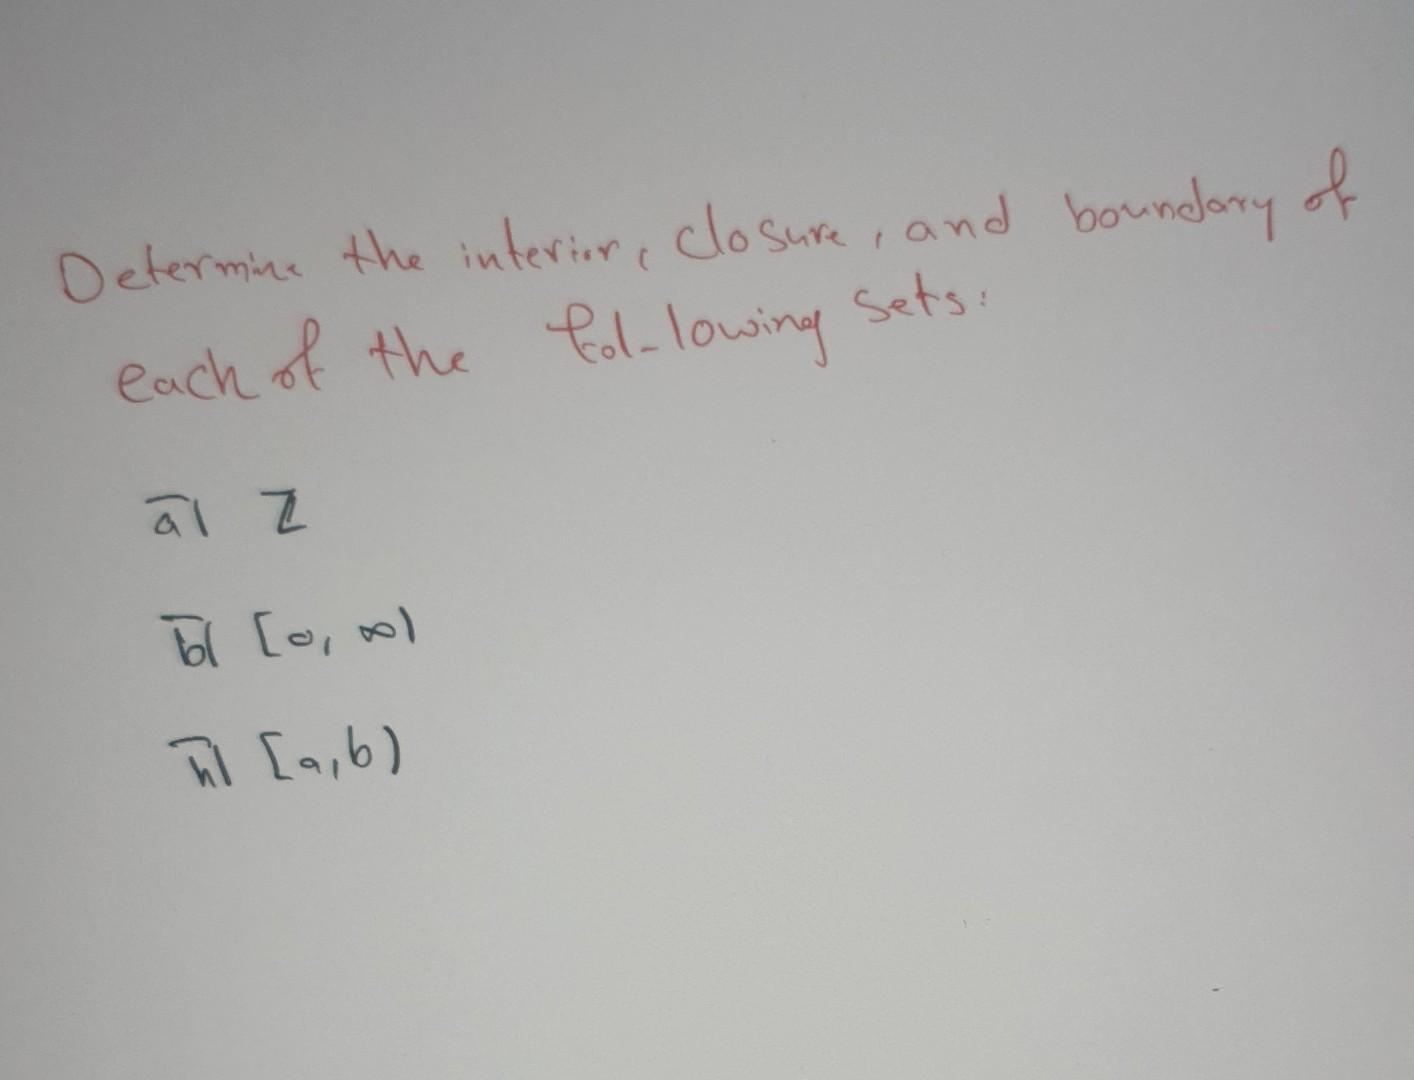 Determine the interior, closure, and boundary of
each of the fol-lowing sets:
a) Z
b) [0, ∞)
h) [a,b)